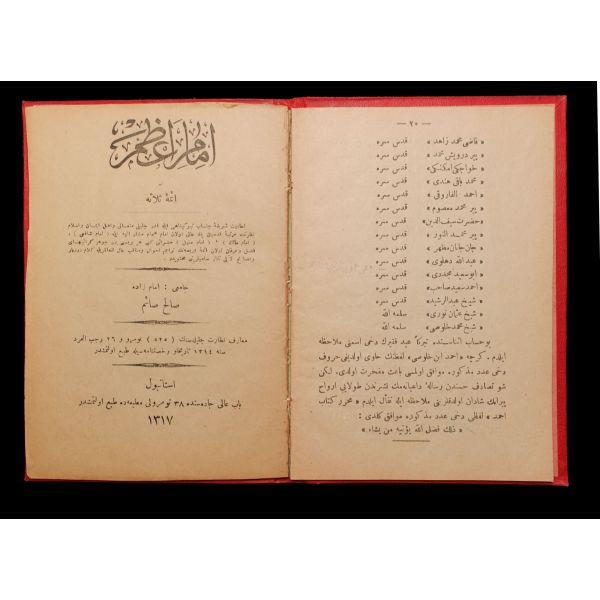 امام اعظم
و
ائمهٔ ثلاثه
جامعی : امام زاده
صالح صائم
معارف نظارت جلیله‌سنك ( ٥٢٥ ) نومرو و ٢٦ رجب الفرد
سنه ١٣١٤ تاریخلو رخصتنامه‌سیله طبع اولنمشدر
استانبول
باب عالی جاده‌سنده ٣٨ نومرولی مطبعه‌ده طبع اولنمشدر
١٣١٧
— ٢٠ —
« قاضی محمد زاهد » قدس سره
« پیر درویش محمد » قدس سره
« خواجكی امكنكی » قدس سره
« محمد باقی هندی » قدس سره
« احمد الفاروقی » قدس سره
« پیر محمد معصوم » قدس سره
« حضرت سیف الدین » قدس سره
« پیر محمد النور » قدس سره
« جان جانان مظهر » قدس سره
« عبدالله دهلوی » قدس سره
« ابوسعید مجددی » قدس سره
« احمد سعید صاحب » قدس سره
« شیخ عبدالرشید » قدس سره
« شیخ عثمان نوری » سلمه الله
« شیخ محمد خلوصی » سلمه الله
بو حساب اثناسنده تبركاً عبد فقیرك دخی اسمنی ملاحظه
ایلدم . كرچه « احمد ابن خلوصی » لفظنك حاوی اولدیغی حروف
دخی عدد مذكوره موافق اولمسی باعث مفخرت اولدی . لكن
شو تصادف حسندن رساله داعیانه‌مك نشرندن طولایی ارواح
پیرانك شادان اولدقلرینی ملاحظه ایله تفأل ایلدم « محرر كتاب
احمد » لفظی دخی عدد مذكوره موافق كلدی :
« ذلك فضل الله یؤتیه من یشاء »